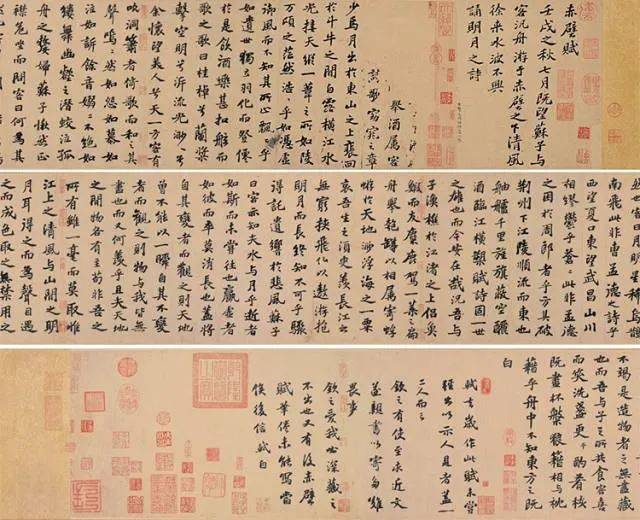 赤壁賦
壬戌之秋七月既望蘇子與
客泛舟游于赤壁之下清風
徐來水波不興
誦明月之詩
舉酒屬客
歌窈窕之章
少焉月出於東山之上裴回
於斗牛之間白露橫江水
光接天縱一葦之所如陵
萬頃之茫然浩浩乎如馮虛
御風而不知其所止飄飄乎
如遺世獨立羽化而登僊
於是飲酒樂甚扣舷而
歌之歌曰桂棹兮蘭槳
擊空明兮泝流光渺渺兮
余懷望美人兮天一方客有
吹洞簫者倚歌而和之其
聲嗚嗚然如怨如慕如
泣如訴餘音嫋嫋不絕如
縷舞幽壑之潛蛟泣孤
舟之嫠婦蘇子愀然正
襟危坐而問客曰何為其
然也客曰月明星稀烏鵲
南飛此非孟德之詩乎
西望夏口東望武昌山川
相繆鬱乎蒼蒼此非孟德
之困於周郎者乎方其破
荊州下江陵順流而東也
舳艫千里旌旗蔽空釃
酒臨江橫槊賦詩固一世
之雄也而今安在哉況吾與
子漁樵於江渚之上侶魚
鰕而友麋鹿駕一葉之扁
舟舉匏樽以相屬寄蜉
蝣於天地渺浮海之一粟
哀吾生之須臾羨長江之
無窮挾飛仙以遨游抱
明月而長終知不可乎驟
得託遺響於悲風蘇子
曰客亦知夫水與月乎逝者
如斯而未嘗往也贏虛者
如彼而卒莫消長也蓋將
自其變者而觀之則天地
曾不能以一瞬自其不變
者而觀之則物與我皆無
盡也而又何羨乎且夫天地
之間物各有主苟非吾之
所有雖一毫而莫取惟
江上之清風與山間之明
月耳得之而為聲目遇
之而成色取之無禁用之
不竭是造物者之無盡藏
也而吾與子之所共食客喜
而笑洗盞更酌肴核
既盡杯盤狼籍相與枕
藉乎舟中不知東方之既
白
軾去歲作此賦未嘗
輕出以示人見者蓋一
二人而已
欽之有使至求近文
遂親書以寄多難
畏事
欽之愛我必深藏之
不出也又有後赤壁
賦筆倦未能寫當
俟後信軾白